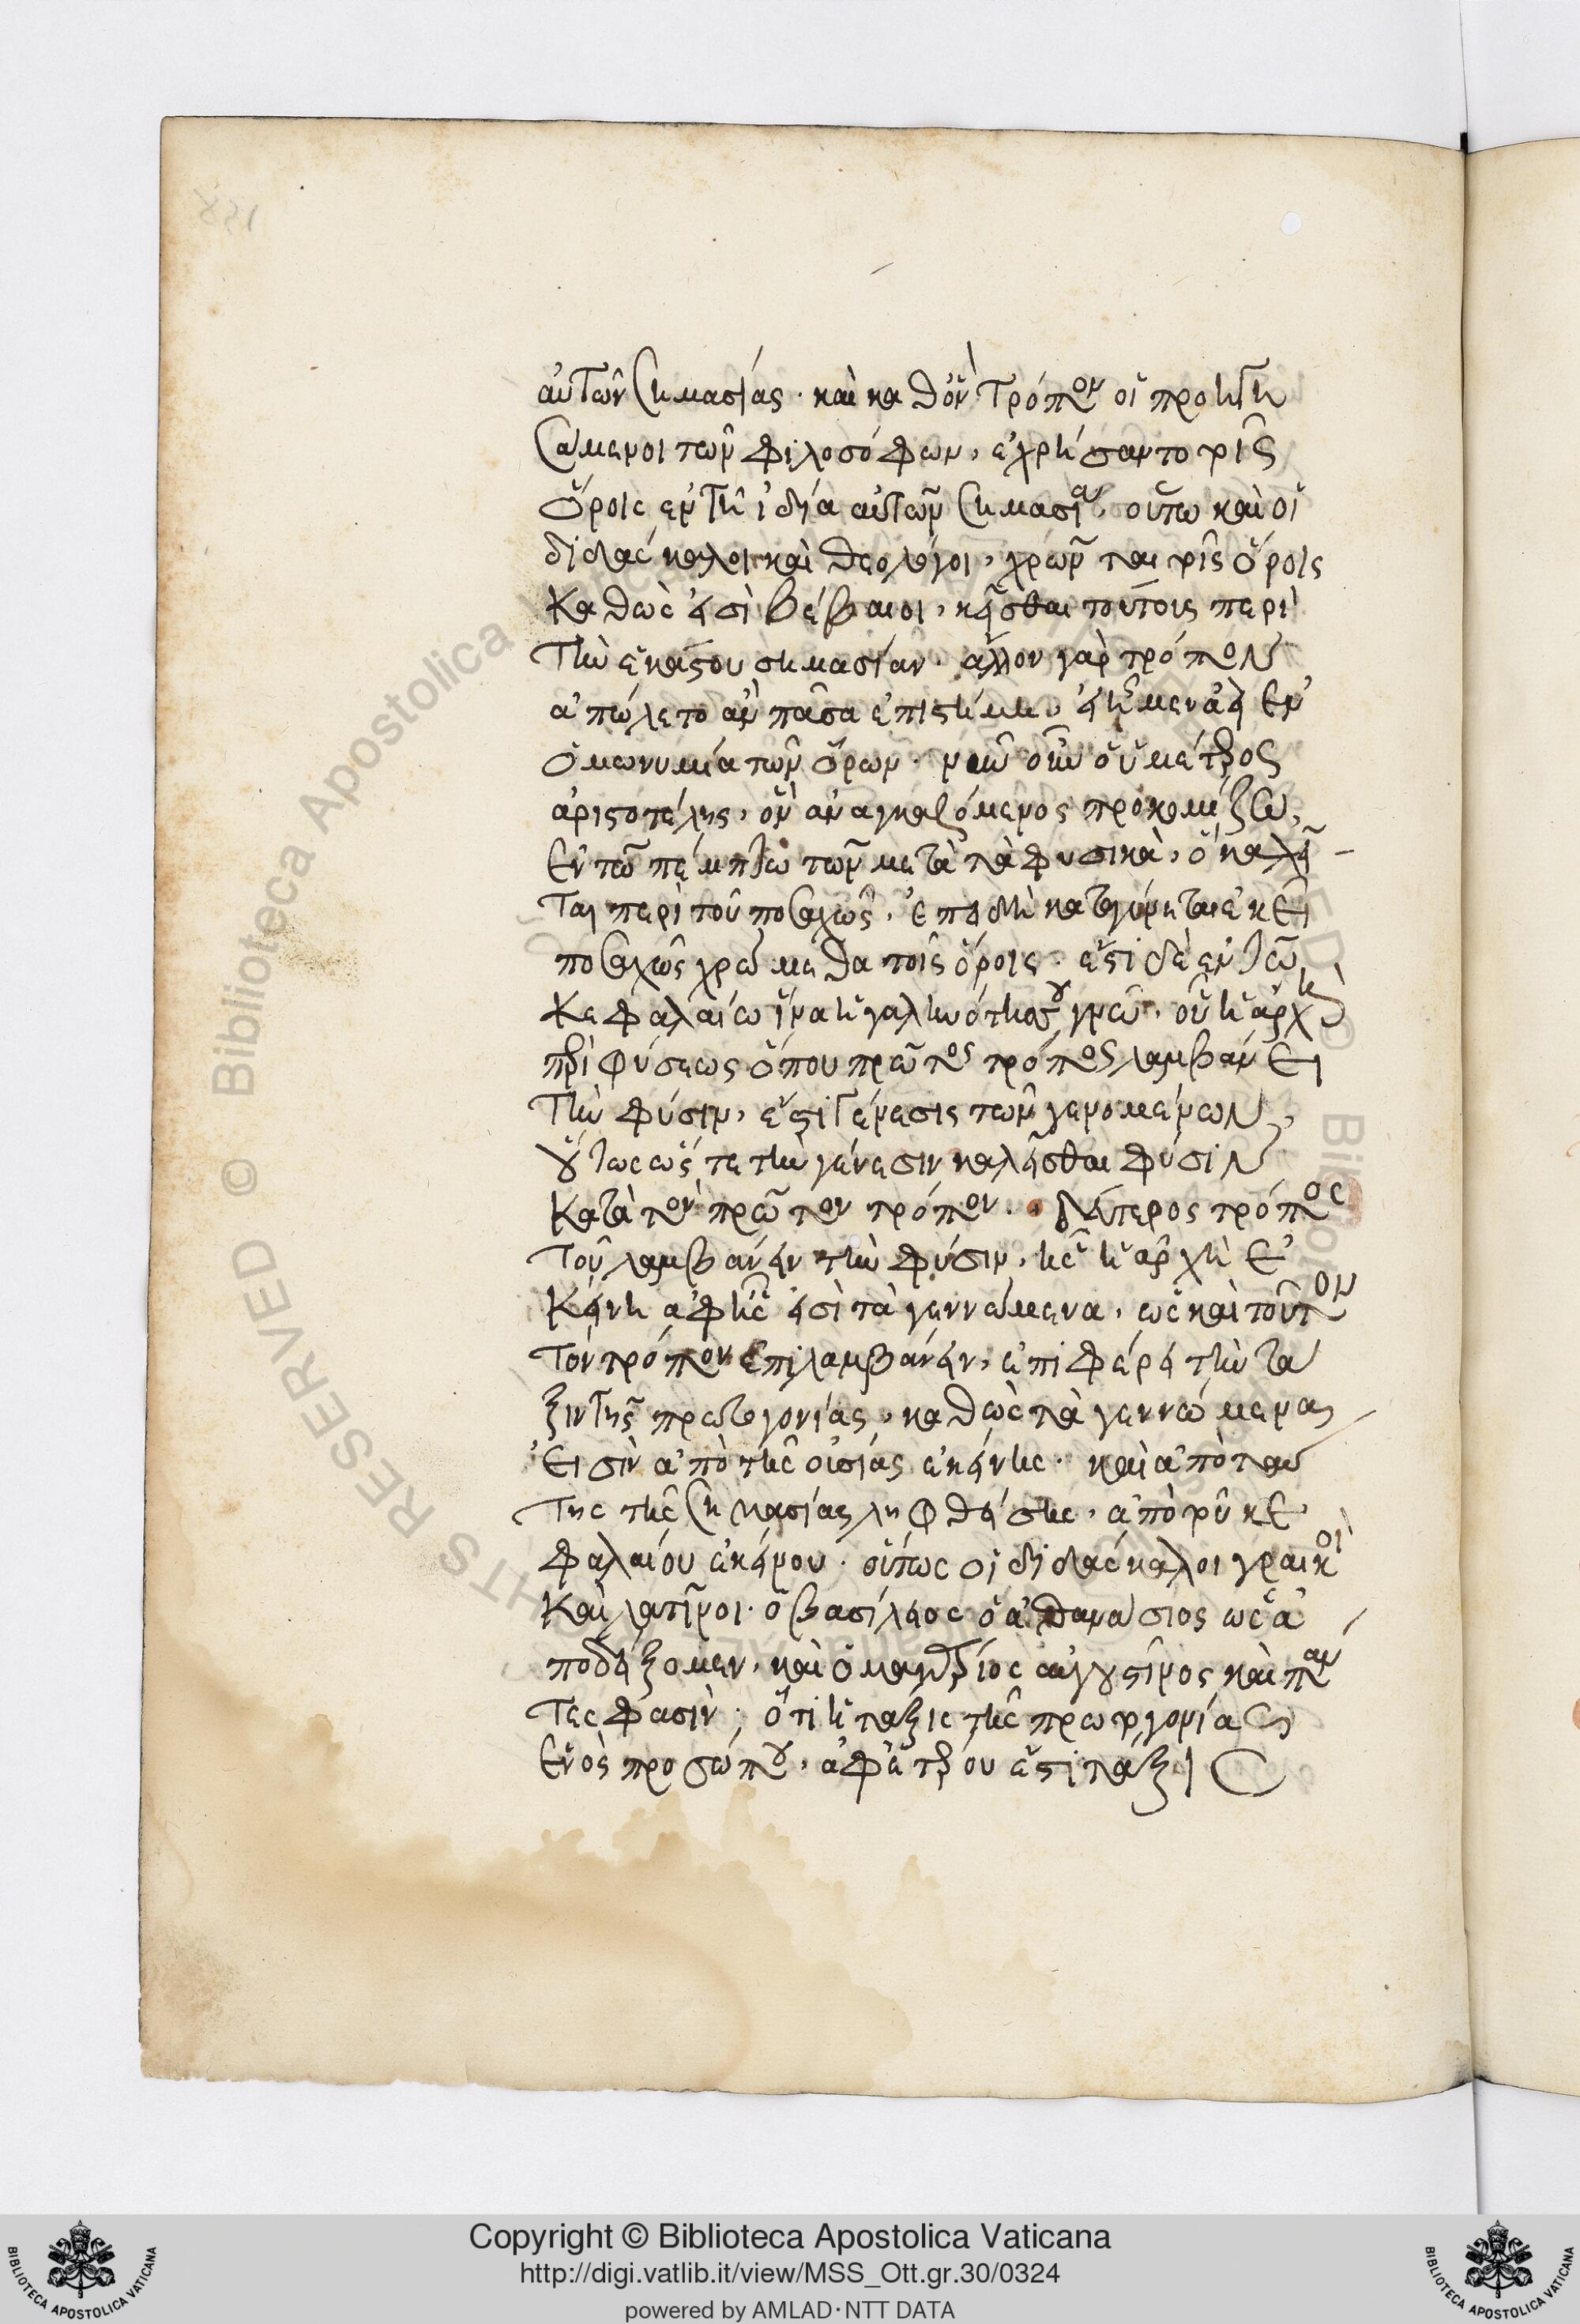 αὐτῶν σημασίας · καὶ καθ ὃν τρόπον οἱ προηγη
σάμενοι τῶν φιλοσόφων, ἐχρήσαντο τοῖς
ὅροις ἐν τῇ ἰδία αὐτῶν σημασία, οὕτω καὶ οἱ
διδάσκαλοι καὶ θεολόγοι, χρῶνται τοῖς ὅροις
καθὼς εἰσὶ βέβαιοι, κεῖσθαι τούτοις περὶ
τὴν ἑκάστου σημασίαν · ἄλλον γὰρ τρόπον
ἀπώλετο ἂν πᾶσα ἐπιστήμη, εἰ ἦμεν ἀεὶ ἐν
ὁμωνυμία τῶν ὅρων · οὖν ὁ ὑμέτερος
ἀριστοτέλης, ὃν ἀναγκαζόμενος προκομίζω,
ἐν τῶ πέμπτω τῶν μετὰ τὰ φυσικὰ, ὃ καλεῖ
ται περὶ τοῦ ποσαχῶς, ἐπειδὴ κατηγόρηται ἐκεῖ
ποσαχῶς χρώμεθα τοῖς ὅροις · ἔστι δὲ ἐν τῶ
κεφαλαίω οὗ ἡ ἀρχὴ
περὶ φύσεως ὅπου πρῶτος τρόπος λαμβάνει
τὴν φύσιν, ἔστι γένεσις τῶν γενομένων,
οὕτως ὥστε τὴν γένεσιν καλεῖσθαι φύσιν
κατὰ τὸν πρῶτον τρόπον · δεύτερος τρόπος
τοῦ λαμβάνειν τὴν φύσιν, ἡ ἀρχὴ ἐ
κείνη ἀφ ἧς εἰσὶ τὰ γεννώμενα, ὡς καὶ τοῦτον
τὸν τρόπον ἐπιλαμβάνειν, ἐπιφέρει τὴν τά
ξιν τῆς πρωτογονίας, καθὼς τὰ γεννώμενα
εἰσὶν ἀπὸ τῆς οὐσίας ἐκείνης · καὶ ἀπὸ ταύ
της τῆς σημασίας ληφθείσης, ἀπὸ τοῦ κε
φαλαίου ἐκείνου · οὕτως οἱ διδάσκαλοι γραικοὶ
καὶ λατῖνοι · ὁ βασίλειος ὁ ἀθανάσιος ὡς ἀ
ποδείξομεν, καὶ ὁ μακάριος αὐγουστῖνος καὶ πάν
τες φασὶν · ὅτι ἡ τάξις τῆς πρωτογονίας
ἑνὸς προσώπου, ἀφ ἑτέρου ἐστὶ τάξις
Copyright © Biblioteca Apostolica Vaticana
http://digi.vatlib.it/view/MSS_Ott.gr.30/0324
powered by AMLAD·NTT DATA